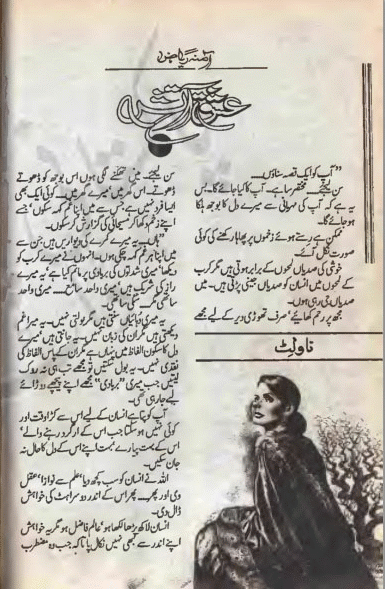 آمنہ ریاض
عشق آتش
"آپ کو ایک قصہ سناؤں۔۔۔
سن لیجئے۔ مختصر سا ہے۔ آپ کا کیا جائے گا۔ بس
یہ ہے کہ آپ کی مہربانی سے میرے دل کا بوجھ ہلکا
ہو جائے گا۔
ممکن ہے رستے ہوئے زخموں پر پھاہا رکھنے کی کوئی
صورت نکل آئے۔
خوشی کی صدیاں لمحوں کے برابر ہوتی ہیں مگر کرب
کے لمحوں میں انسان کو صدیاں جینی پڑتی ہیں۔ میں
صدیاں جی رہی ہوں۔
مجھ پر رحم کھائیے' صرف تھوڑی دیر کے لیے مجھے
ناولٹ
سن لیجئے۔ میں تھکنے لگی ہوں اس بوجھ کو ڈھوتے
ڈھوتے۔ اس گھر میں' میرے گھر میں۔ کوئی ایک بھی
ایسا فرد نہیں ہے جس سے میں اپنا غم کہہ سکوں' جسے
اپنے زخم دکھا کر مسیحائی کی گزارش کر سکوں۔
"ہاں۔ یہ میرے کمرے کی دیواریں ہیں جن سے
میں اپنا ہر غم کہہ چکی ہوں۔ انہوں نے میرے کرب کو
دیکھا' میری شدتوں کی بربادی پر ماتم کیا ہے' یہ میرے
راز کی شریک ہیں' میری واحد سامع۔۔۔ میری واحد
ساتھی مگر۔ گونگی ساتھی۔
یہ میری دہائیاں سنتی ہیں مگر بولتی نہیں۔ یہ میرا غم
دیکھتی ہیں مگر ان کی زبان نہیں۔ یہ جانتی ہیں' میرے
دل کا سکون الفاظ میں پنہاں ہے مگر ان کے پاس الفاظ کی
نقدی نہیں۔ یہ بول سکتیں تو مجھے تب ہی نہ روک
لیتیں جب میری "بربادی" مجھے اپنے پیچھے دوڑائے
لیے جا رہی تھی۔
آپ کو پتا ہے انسان کے لیے اس سے کڑا وقت اور
کوئی نہیں ہو سکتا جب اس کے ارد گرد رہنے والے'
اس کے بہت پیارے' بہت اپنے اس کے دل کا حال نہ
جان سکیں۔
اللہ نے انسان کو سب کچھ دیا' علم سے نوازا' عقل
دی اور پھر۔۔۔ پھر اس کے اندر دوسراہٹ کی خواہش
ڈال دی۔
انسان لاکھ پڑھا لکھا ہو' عالم فاضل ہو مگر یہ خواہش
اپنے اندر سے کبھی نہیں نکال پاتا کہ جب وہ مضطرب